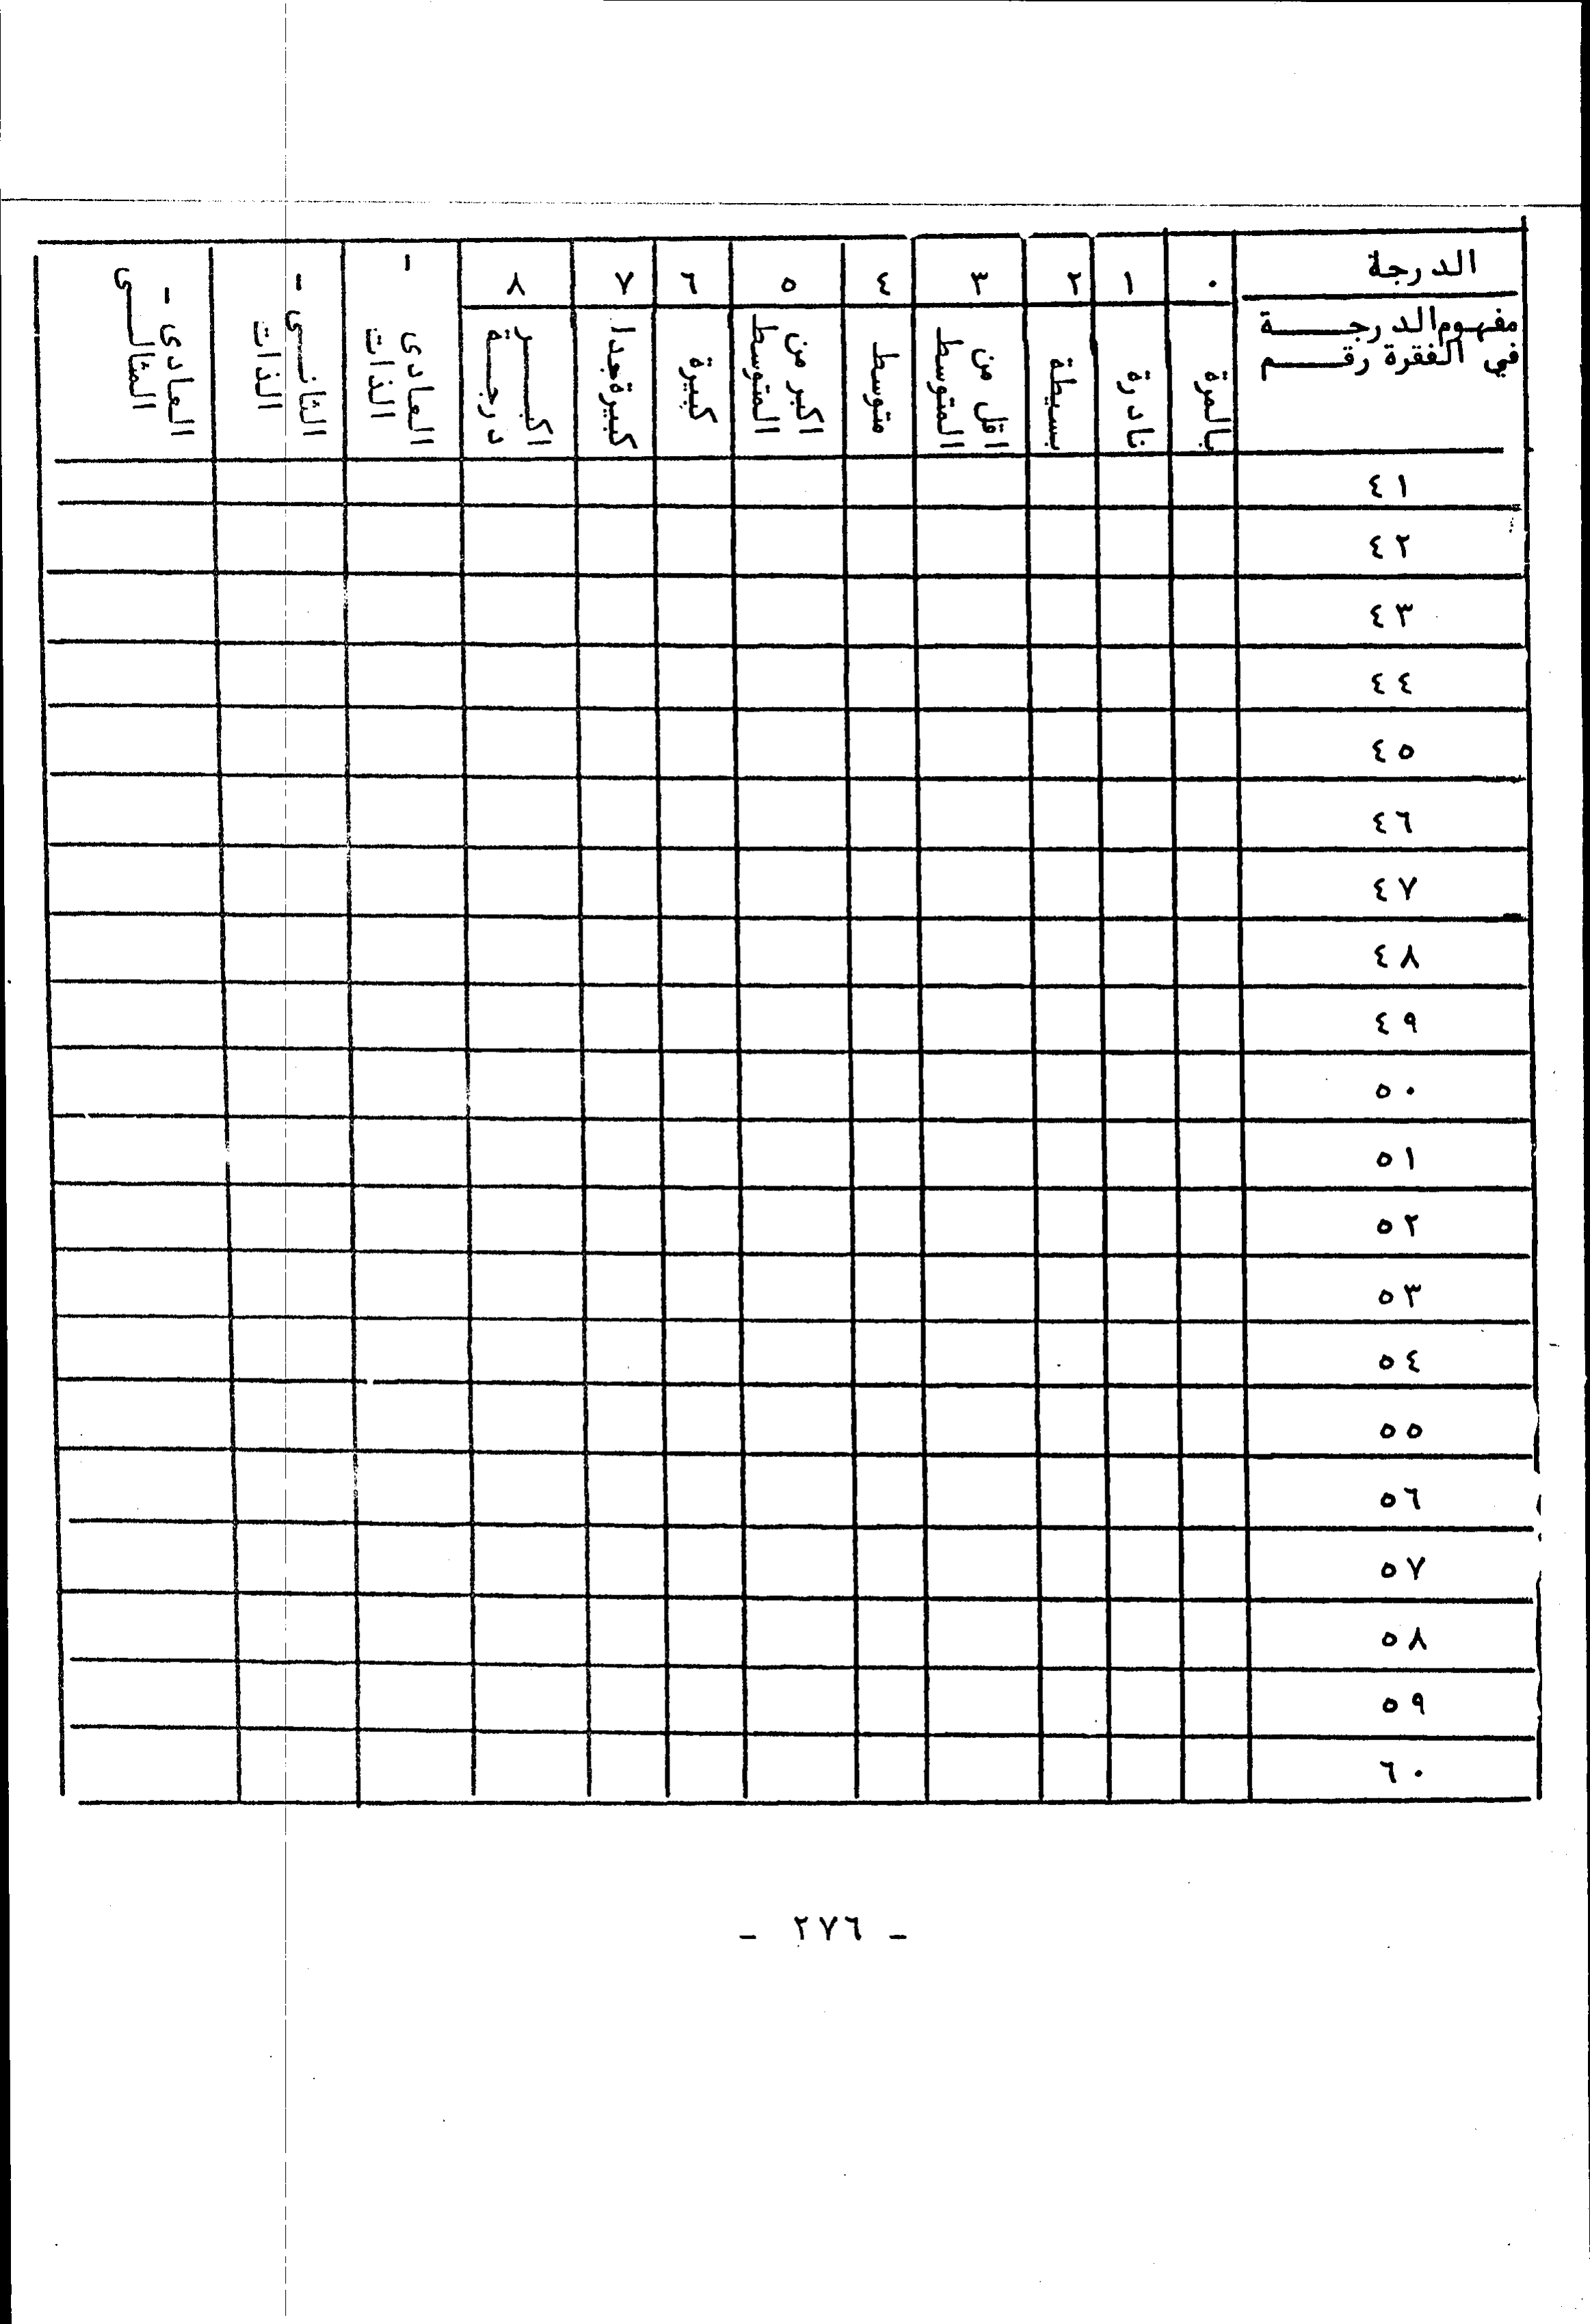 الدرجة ٠ ١ ٢ ٣ ٤ ٥ ٦ ٧ ٨
مفهوم الدرجة
في الفقرة رقم
بالمرة
نادرة
بسيطة
اقل من
المتوسط
متوسط
اكبر من
المتوسط
كبيرة
كبيرة جدا
اكبر
درجة
العادى -
الذات
الثانى -
الذات
العادى -
المثالى
٤١
٤٢
٤٣
٤٤
٤٥
٤٦
٤٧
٤٨
٤٩
٥٠
٥١
٥٢
٥٣
٥٤
٥٥
٥٦
٥٧
٥٨
٥٩
٦٠
- ٢٧٦ -